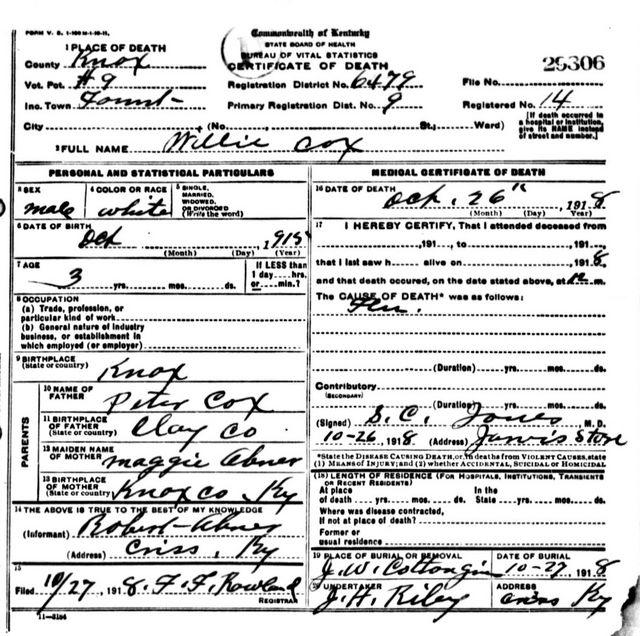 FORM V. S. 1-100M-1-10-11.
Commonwealth of Kentucky
STATE BOARD OF HEALTH
BUREAU OF VITAL STATISTICS
CERTIFICATE OF DEATH
1 PLACE OF DEATH
County Knox
Vot. Pct. #9
Inc. Town Fount
Registration District No. 6479
Primary Registration Dist. No. 9
File No. 29306
Registered No. 14
City (No. St., Ward)
[If death occurred in a hospital or institution, give its NAME instead of street and number.]
2 FULL NAME Willie Cox
PERSONAL AND STATISTICAL PARTICULARS
3 SEX male
4 COLOR OR RACE white
5 SINGLE, MARRIED, WIDOWED, OR DIVORCED (Write the word)
6 DATE OF BIRTH Oct 1915
(Month) (Day) (Year)
7 AGE 3 yrs. mos. ds.
If LESS than 1 day, hrs. or min.?
8 OCCUPATION
(a) Trade, profession, or particular kind of work
(b) General nature of industry business, or establishment in which employed (or employer)
9 BIRTHPLACE (State or country) Knox
PARENTS
10 NAME OF FATHER Peter Cox
11 BIRTHPLACE OF FATHER (State or country) Clay Co
12 MAIDEN NAME OF MOTHER Maggie Abner
13 BIRTHPLACE OF MOTHER (State or country) Knox co Ky
14 THE ABOVE IS TRUE TO THE BEST OF MY KNOWLEDGE
(Informant) Robert Abner
(Address) Criss, Ky
15
Filed 10/27, 1918. F. F. Rowland
REGISTRAR
11-3184
MEDICAL CERTIFICATE OF DEATH
16 DATE OF DEATH Oct. 26", 1918
(Month) (Day) (Year)
17 I HEREBY CERTIFY, That I attended deceased from
, 191 , to , 191 ,
that I last saw h alive on , 1918
and that death occured, on the date stated above, at m.
The CAUSE OF DEATH* was as follows:
Flu.
(Duration) yrs. mos. ds.
Contributory
(SECONDARY)
(Duration) yrs. mos. ds.
(Signed) S. C. Jones M. D.
10-26, 1918 (Address) Jarvis Store
*State the DISEASE CAUSING DEATH, or, in deaths from VIOLENT CAUSES, state (1) MEANS OF INJURY; and (2) whether ACCIDENTAL, SUICIDAL or HOMICIDAL
(18) LENGTH OF RESIDENCE (FOR HOSPITALS, INSTITUTIONS, TRANSIENTS OR RECENT RESIDENTS)
At place of death yrs. mos. ds. In the State yrs. mos. ds.
Where was disease contracted, If not at place of death?
Former or usual residence
19 PLACE OF BURIAL OR REMOVAL J. W. Cottongin
DATE OF BURIAL 10-27, 1918
20 UNDERTAKER J. H. Riley
ADDRESS Criss Ky